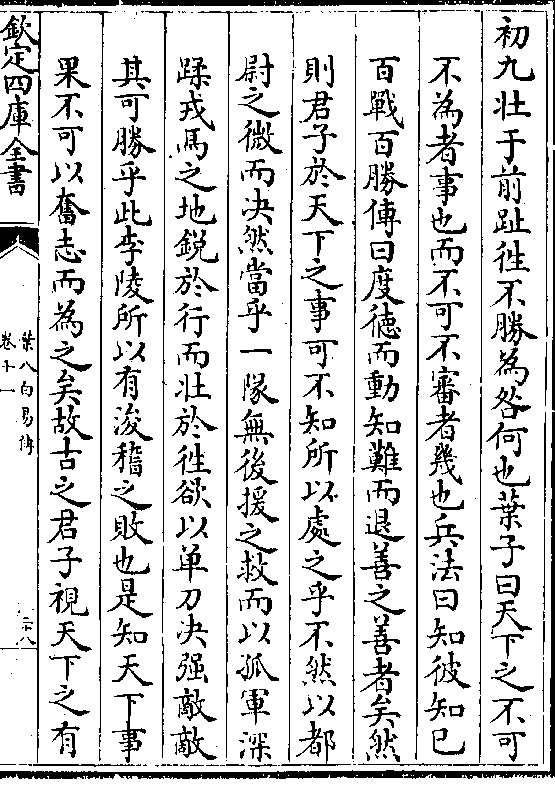 初九壯于前趾徃不勝為咎何也葉子曰天下之不可
不為者事也而不可不審者幾也兵法曰知彼知已
百戰百勝傳曰度徳而動知難而退善之善者矣然
則君子於天下之事可不知所以處之乎不然以都
尉之微而决然當乎一隊無後援之救而以孤軍深
蹂戎馬之地鋭於行而壯於徃欲以单刀决强敵敵
其可勝乎此李陵所以有浚稽之敗也是知天下事
果不可以奮志而為之矣故古之君子視天下之有
欽定四庫全書
葉八白易傳
卷十一